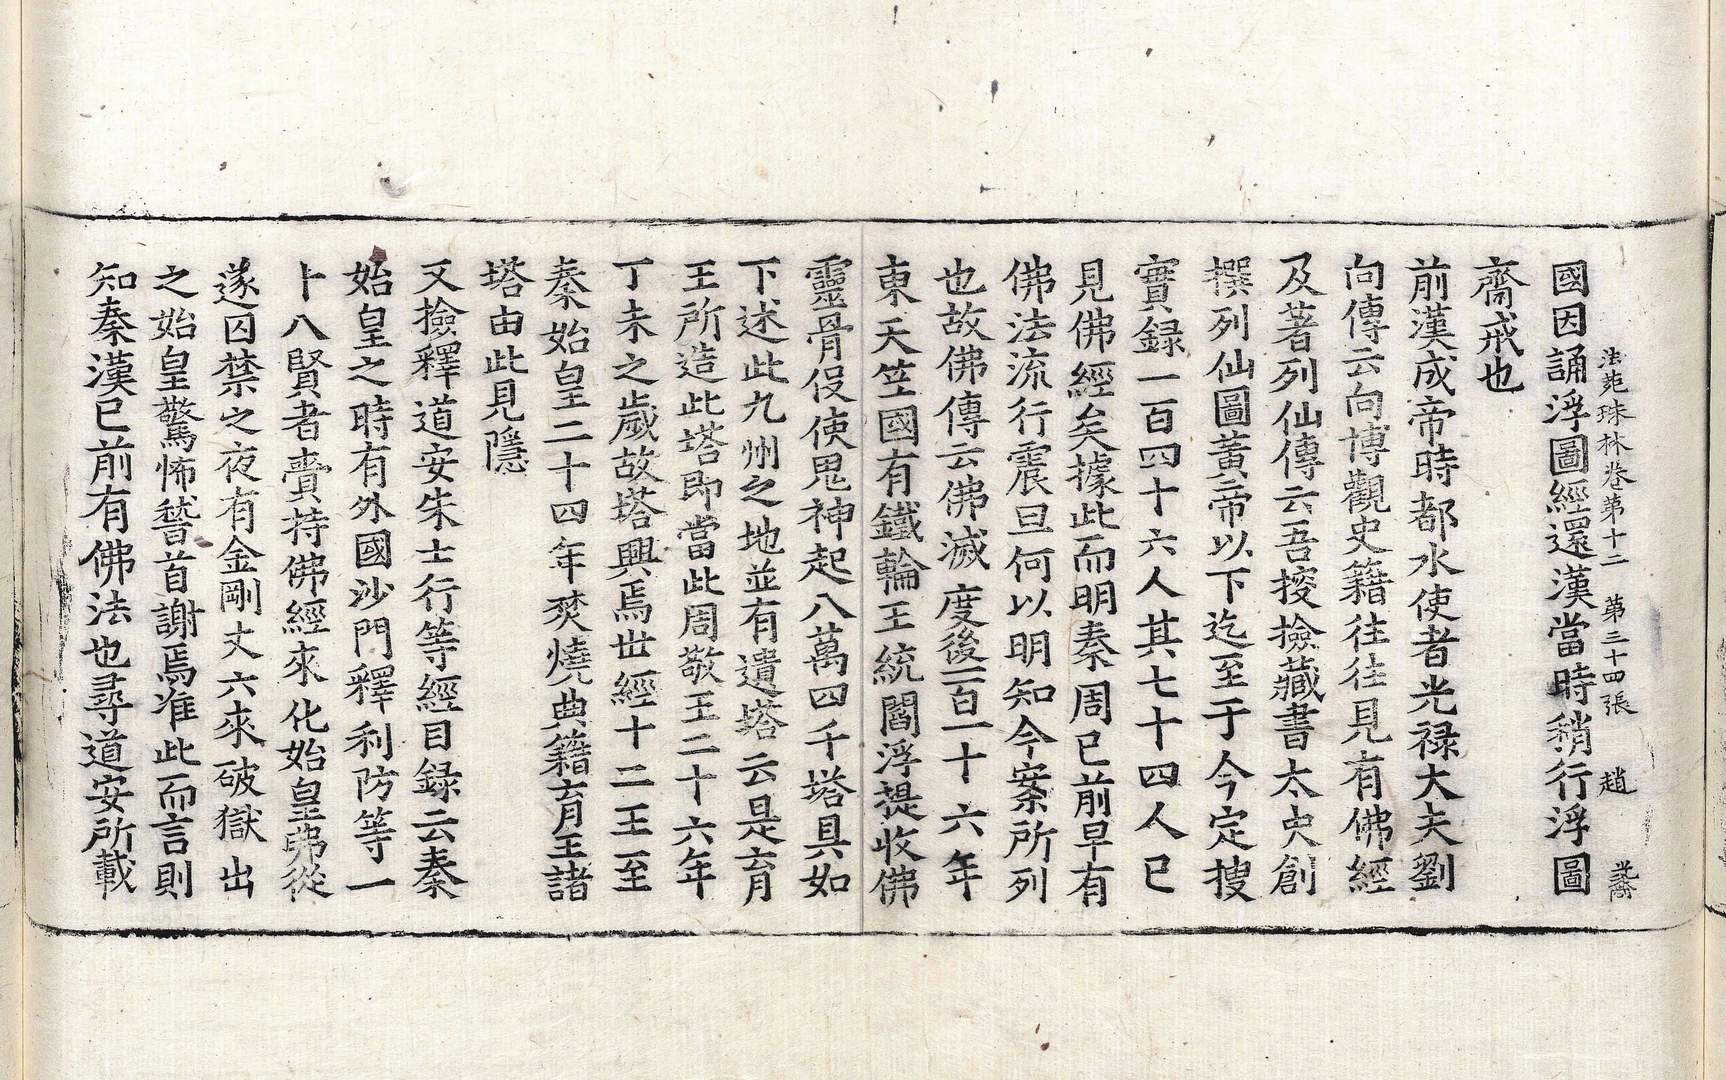 法苑珠林卷第十二 第三十四張 趙
國因誦浮圖經還漢當時稍行浮圖
齋戒也
前漢成帝時都水使者光禄大夫劉
向傳云向博觀史籍往往見有佛經
及著列仙傳云吾挍撿藏書太史創
撰列仙圖黃帝以下迄至于今定搜
實録一百四十六人其七十四人已
見佛經矣據此而明秦周已前早有
佛法流行震旦何以明知今案所列
也故佛傳云佛滅度後一百一十六年
東天竺國有鐵輪王統閻浮提收佛
靈骨役使鬼神起八萬四千塔具如
下述此九州之地並有遺塔云是育
王所造此塔即當此周敬王二十六年
丁未之歲故塔興焉世經十二王至
秦始皇二十四年焚燒典籍育王諸
塔由此見隱
又撿釋道安朱士行等經目録云秦
始皇之時有外國沙門釋利防等一
十八賢者賷持佛經來化始皇弗從
遂囚禁之夜有金剛丈六來破獄出
之始皇驚怖稽首謝焉准此而言則
知秦漢已前有佛法也尋道安所載